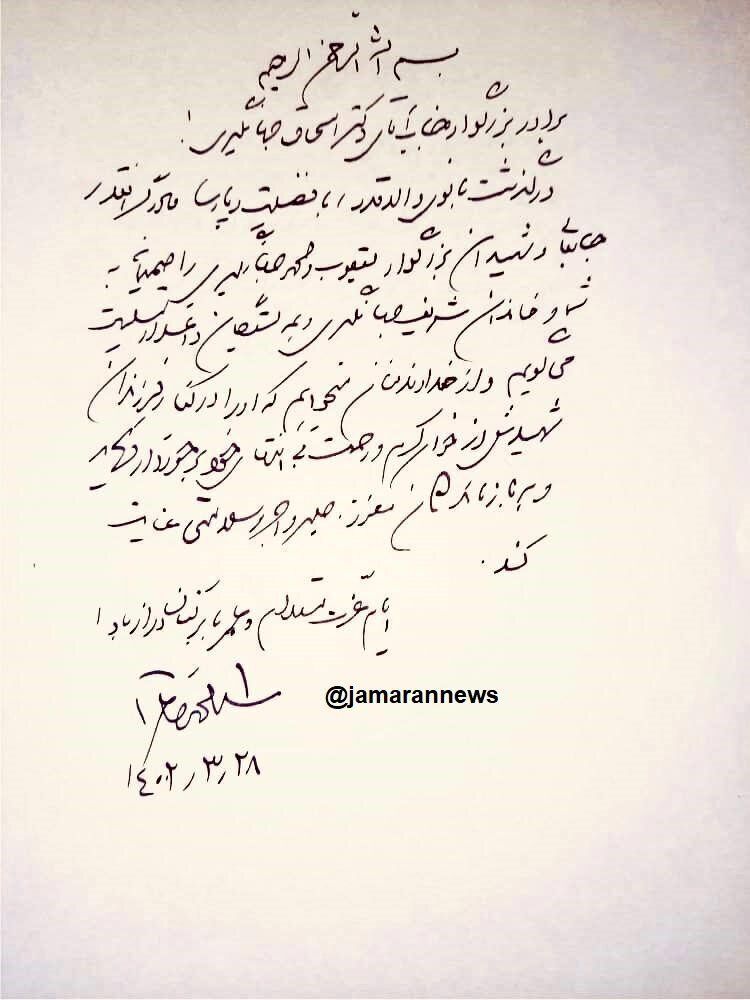 بسم الله الرحمن الرحیم
برادر بزرگوار جناب آقای دکتر اسحاق جهانگیری!
درگذشت بانوی والاقدر، بافضیلت و پارسا مادر گرانقدر
جنابعالی و شهیدان بزرگوار یعقوب و محمد جهانگیری را صمیمانه به
شما و خاندان شریف جهانگیری و همه بستگان داغدار تسلیت
می‌گویم و از خداوند منان می‌خواهم که او را در کنار فرزندان
شهیدش از خوان کرم و رحمت بی‌انتهای خود برخوردار فرماید
و به بازماندگان معزز، صبر و اجر و سلامتی عنایت
کند.
ایام عزت مستدام و عمر بابرکتتان دراز باد!
@jamarannews
۱۴۰۲٫۳٫۲۸